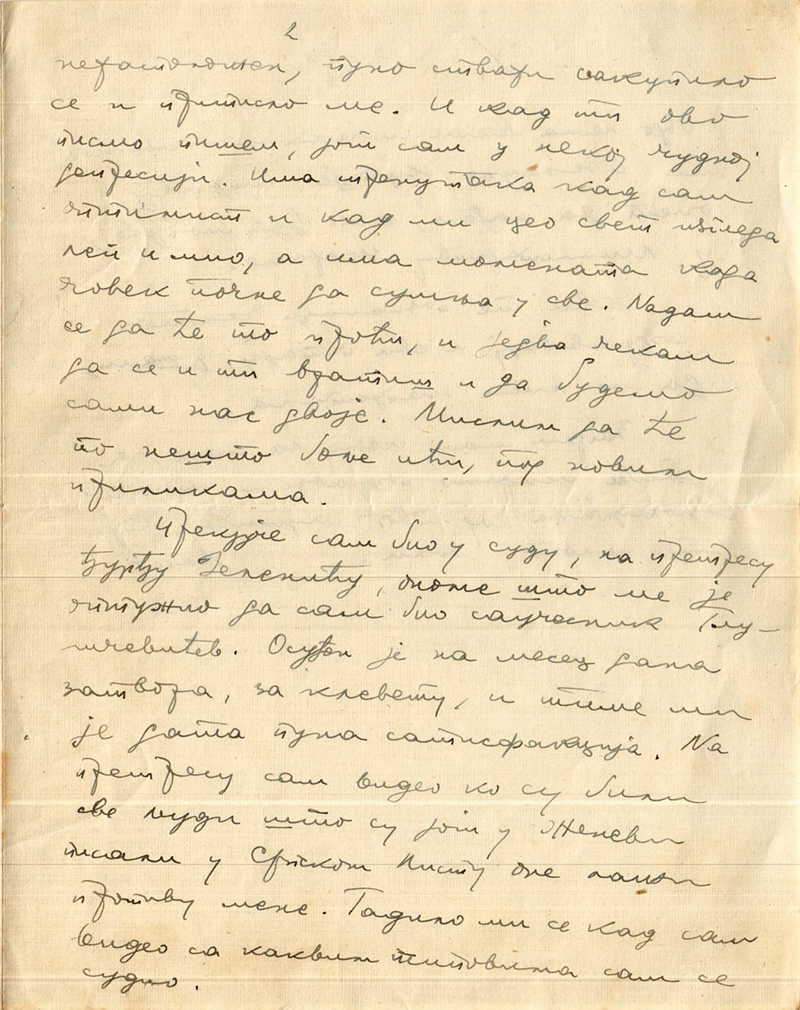 2
нерасположен, пуно ствари сакупило
се и притисло ме. И кад ти ово
писмо пишем, још сам у некој чудној
депресији. Има тренутака кад сам
оптимист и кад ми цео свет изгледа
леп и мио, а има момената када
човек почне да сумња у све. Nадам
се да ће то проћи, и једва чекам
да се и ти вратиш и да будемо
сами нас двоје. Мислим да ће
то нешто боље ићи, под новим
приликама.
Прекјуче сам био у суду, на претресу
Ђурђу Јеленићу, ономе што ме је
оптужио да сам био саучесник
Осуђен је на месец дана
затвора, за клевету, и тиме ми
је дата пуна сатисфакција. Na
претресу сам видео ко су били
све људи што су још у Женеви
писали у Српском Листу оне лажи
противу мене. Гадило ми се кад сам
видео са каквим типовима сам се
судио.